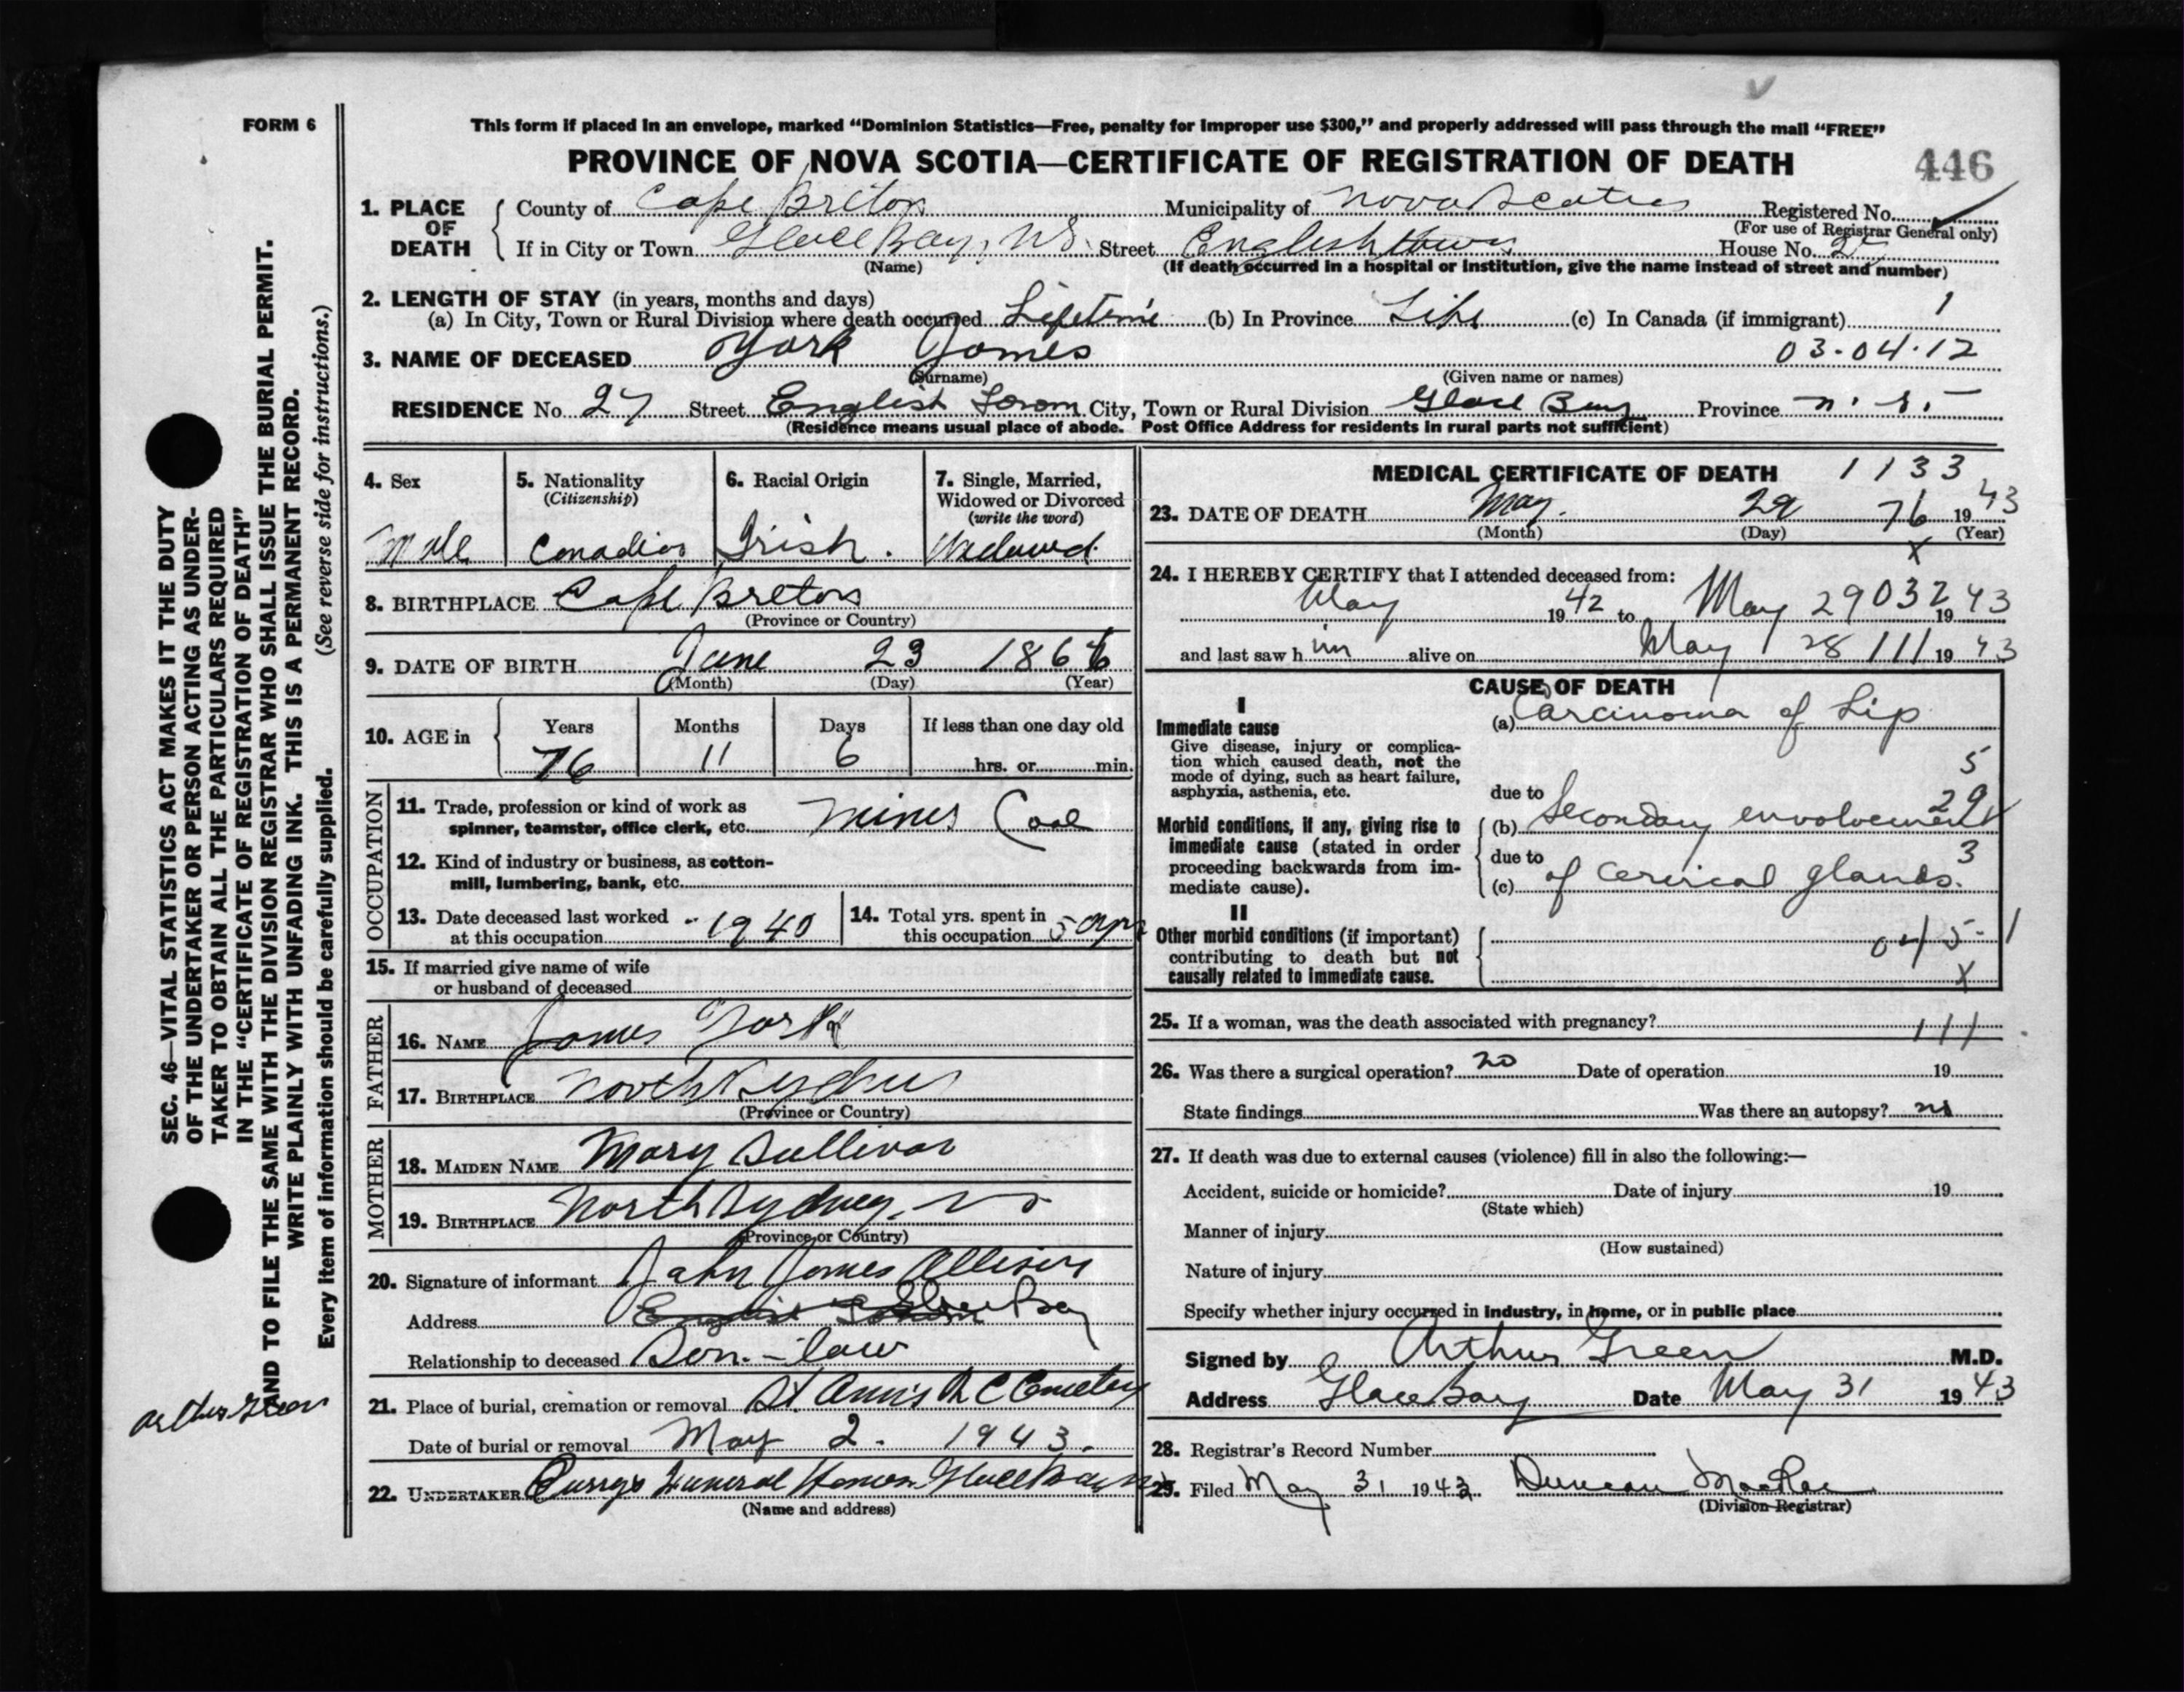 FORM 6
This form if placed in an envelope, marked “Dominion Statistics—Free, penalty for improper use $300,” and properly addressed will pass through the mail “FREE”
PROVINCE OF NOVA SCOTIA—CERTIFICATE OF REGISTRATION OF DEATH
446
1. PLACE OF DEATH
County of Cape Breton Municipality of Nova Scotia Registered No.
(For use of Registrar General only)
If in City or Town Glace Bay, NS. Street Englishtown House No.
(Name)
(If death occurred in a hospital or institution, give the name instead of street and number)
2. LENGTH OF STAY (in years, months and days)
(a) In City, Town or Rural Division where death occurred Lifetime (b) In Province Life (c) In Canada (if immigrant) 1
3. NAME OF DECEASED York James 03-04-12
(Surname) (Given name or names)
RESIDENCE No. 27 Street English Town City, Town or Rural Division Glace Bay Province N. S.
(Residence means usual place of abode. Post Office Address for residents in rural parts not sufficient)
4. Sex
Male
5. Nationality
(Citizenship)
Canadian
6. Racial Origin
Irish.
7. Single, Married,
Widowed or Divorced
(write the word)
Widowed.
8. BIRTHPLACE Cape Breton
(Province or Country)
9. DATE OF BIRTH June 23 1866
(Month) (Day) (Year)
10. AGE in
Years Months Days If less than one day old
76 11 6 hrs. or min.
OCCUPATION
11. Trade, profession or kind of work as
spinner, teamster, office clerk, etc. Miner Coal
12. Kind of industry or business, as cotton-
mill, lumbering, bank, etc.
13. Date deceased last worked
at this occupation 1940
14. Total yrs. spent in
this occupation 50 yrs
15. If married give name of wife
or husband of deceased
FATHER
16. NAME James York
17. BIRTHPLACE North Sydney
(Province or Country)
MOTHER
18. MAIDEN NAME Mary Sullivan
19. BIRTHPLACE North Sydney. NS
(Province or Country)
20. Signature of informant John James Allison
Address Glace Bay
Relationship to deceased Son-law
21. Place of burial, cremation or removal St. Ann's R C Cemetery
Date of burial or removal May 2. 1943.
22. UNDERTAKER Curry's Funeral Home. Glace Bay NS
(Name and address)
MEDICAL CERTIFICATE OF DEATH 1133
23. DATE OF DEATH May. 29 76 1943
(Month) (Day) (Year)
X
24. I HEREBY CERTIFY that I attended deceased from:
May 1942 to May 29 032 1943
and last saw h im alive on May 28 111 1943
CAUSE OF DEATH
I
Immediate cause
Give disease, injury or complica-
tion which caused death, not the
mode of dying, such as heart failure,
asphyxia, asthenia, etc.
(a) Carcinoma of Lip
5
due to
29
Morbid conditions, if any, giving rise to
immediate cause (stated in order
proceeding backwards from im-
mediate cause).
(b) Secondary envolvement
due to
3
(c) of cervical glands.
II
Other morbid conditions (if important)
contributing to death but not
causally related to immediate cause.
045-1
X
25. If a woman, was the death associated with pregnancy? 111
26. Was there a surgical operation? no Date of operation 19
State findings Was there an autopsy? no
27. If death was due to external causes (violence) fill in also the following:—
Accident, suicide or homicide? Date of injury 19
(State which)
Manner of injury
(How sustained)
Nature of injury
Specify whether injury occurred in industry, in home, or in public place
Signed by Arthur Green M.D.
Address Glace Bay Date May 31 1943
28. Registrar's Record Number
29. Filed May 31 1943 Duncan MacRae
(Division Registrar)
SEC. 46—VITAL STATISTICS ACT MAKES IT THE DUTY
OF THE UNDERTAKER OR PERSON ACTING AS UNDER-
TAKER TO OBTAIN ALL THE PARTICULARS REQUIRED
IN THE “CERTIFICATE OF REGISTRATION OF DEATH”
AND TO FILE THE SAME WITH THE DIVISION REGISTRAR WHO SHALL ISSUE THE BURIAL PERMIT.
WRITE PLAINLY WITH UNFADING INK. THIS IS A PERMANENT RECORD.
Every item of information should be carefully supplied. (See reverse side for instructions.)
Arthur Green